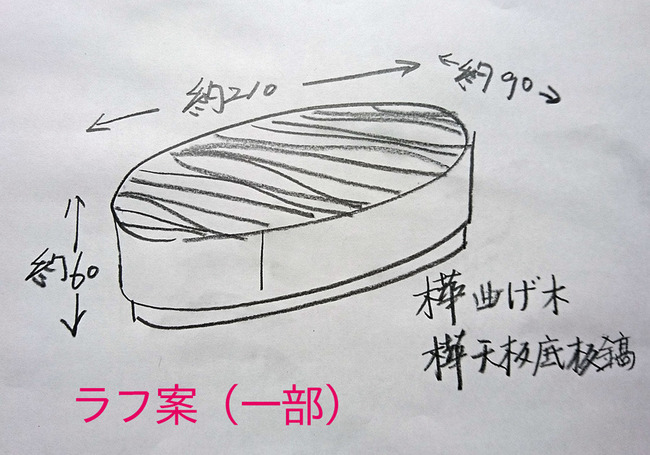 約210
約90
約60
樺曲げ木
樺天板底板鎬
ラフ案（一部）